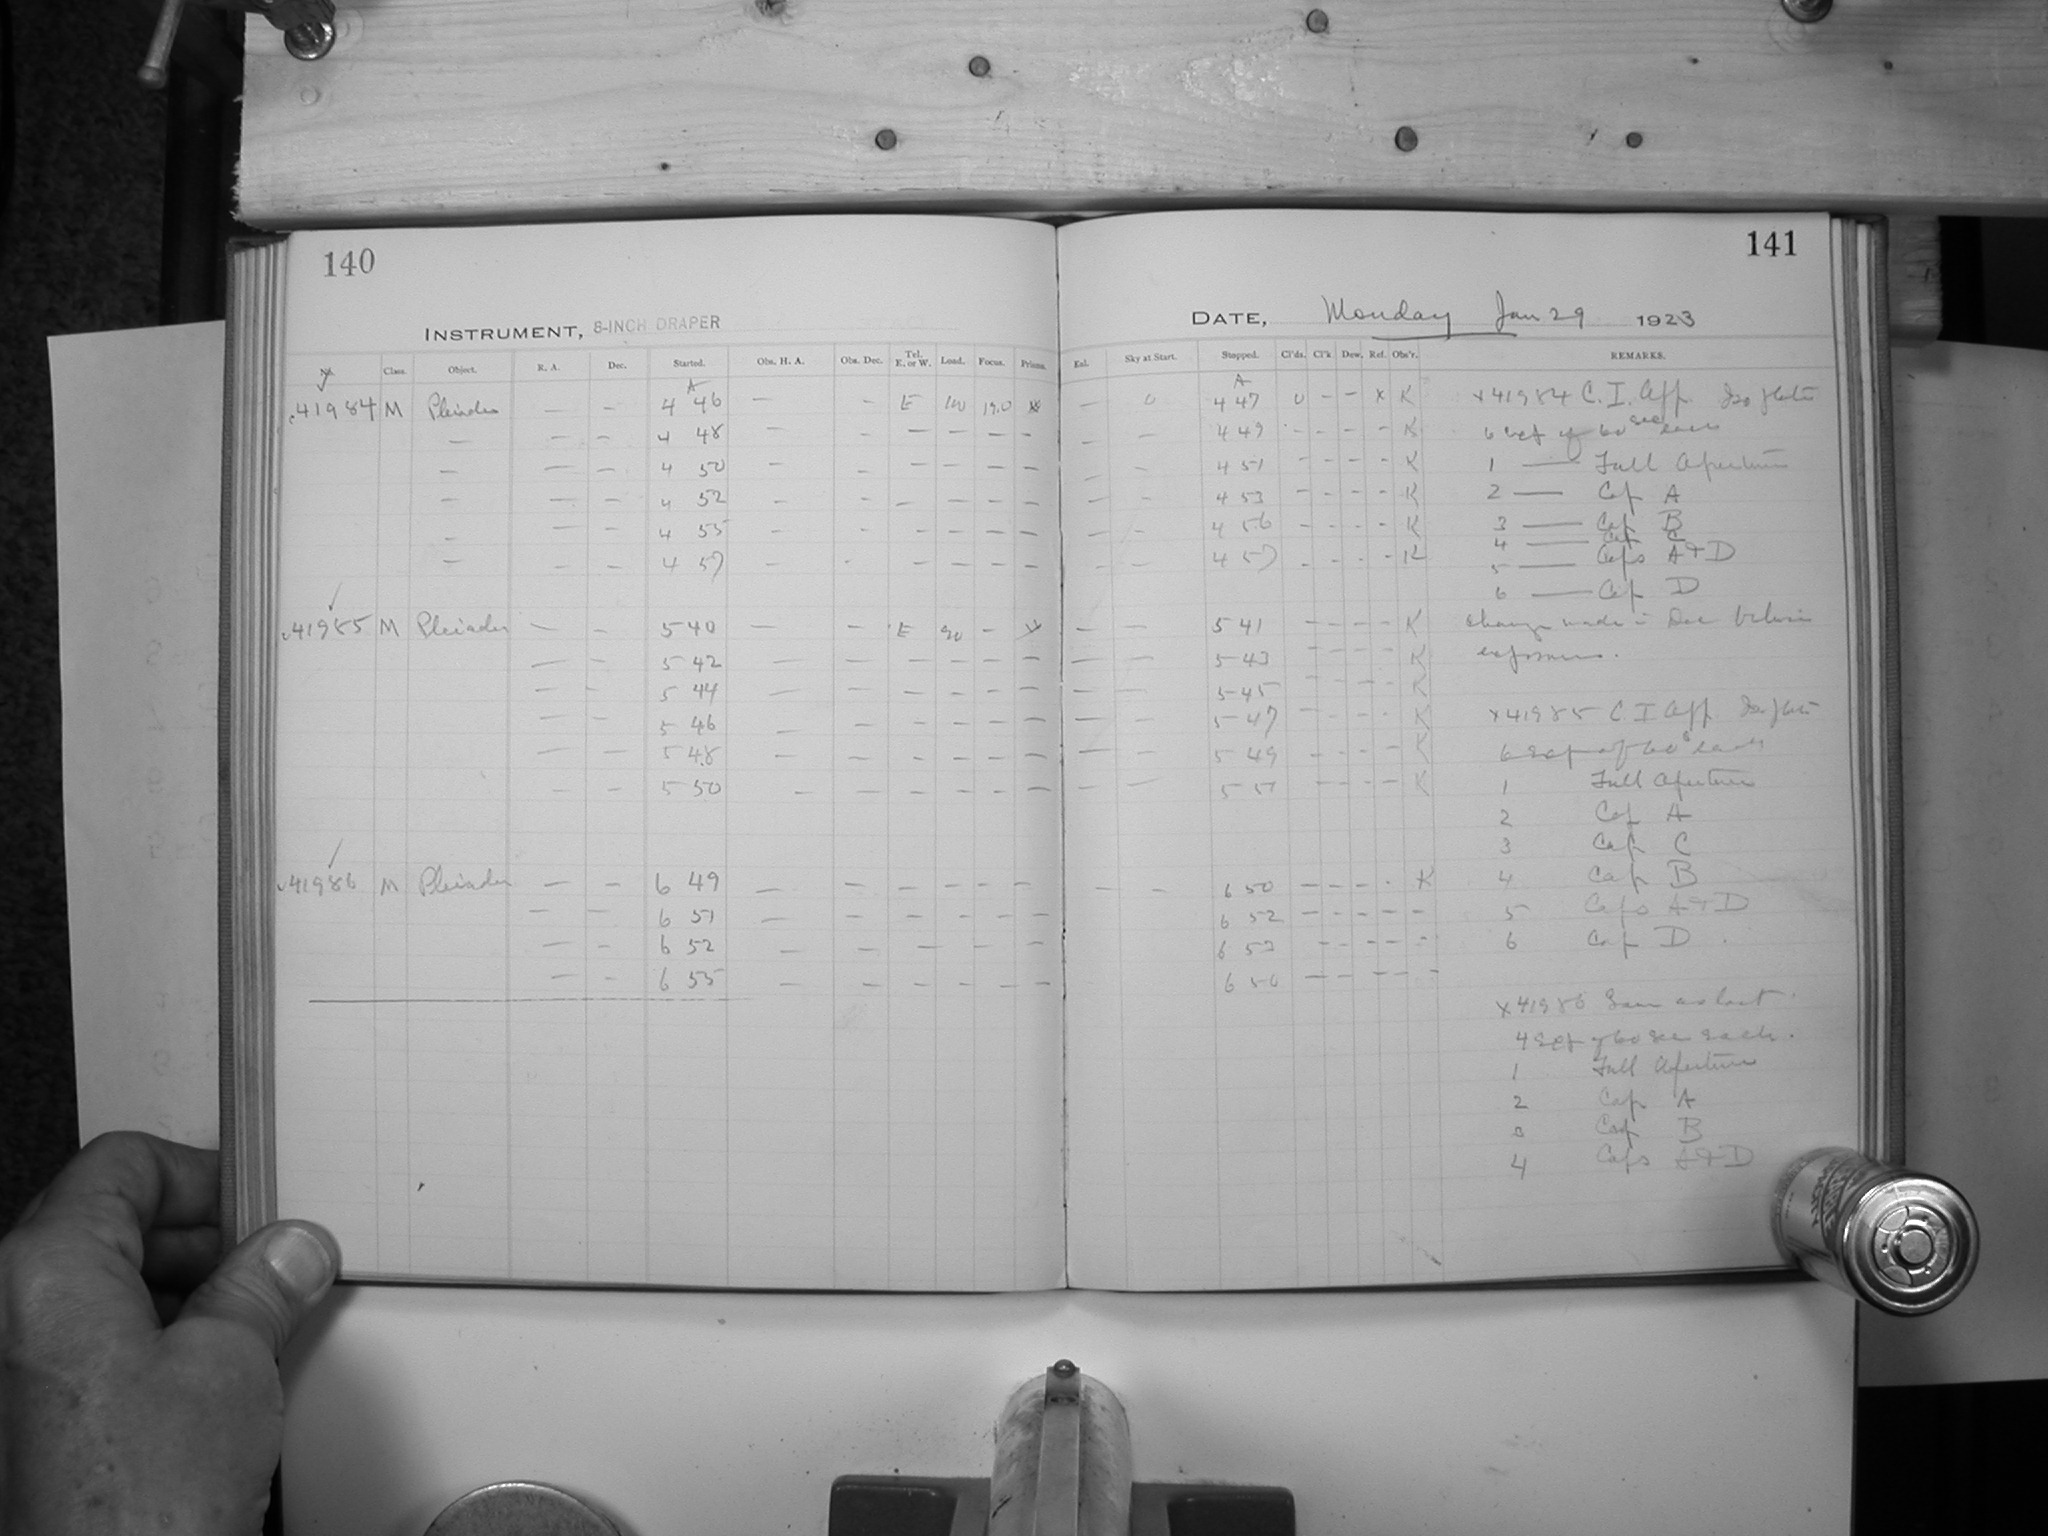 140
141
INSTRUMENT, 8-INCH DRAPER
DATE, Monday Jan 29 1923
Class. Object. R. A. Dec. Started. Obs. H. A. Obs. Dec. Tel. E. or W. Load. Focus. Prisms.
Exl. Sky at Start. Stopped. Cl'ds. Cl'k Dew. Ref. Obs'r. REMARKS.
A
A
41984 M Pleiades — — 4 46 — — E 100 19.0 X — 0 4 47 0 - - X K
X 41984 C. I. App
— — — 4 48 — — — — — — — — 4 49 - - - - K
6 Exp of 60 sec each
— — — 4 50 — — — — — — — — 4 51 - - - - K
1 — Full Aperture
— — — 4 52 — — — — — — — — 4 53 - - - - K
2 — Cap A
— — — 4 55 — — — — — — — — 4 56 - - - - K
3 — Cap B
4 — Cap C
— — — 4 57 — — — — — — — — 4 57 - - - - K
5 — Caps A + D
6 — Cap D
41985 M Pleiades — — 5 40 — — E 90 — X — — 5 41 - - - - K
change made in Dec
— — 5 42 — — — — — — — — 5 43 - - - - K
exposures.
— — 5 44 — — — — — — — — 5 45 - - - - K
— — 5 46 — — — — — — — — 5 47 - - - - K
X 41985 C I App
— — 5 48 — — — — — — — — 5 49 - - - - K
6 Exp of 60 s each
— — 5 50 — — — — — — — — 5 51 - - - - K
1 Full Aperture
2 Cap A
3 Cap C
41986 M Pleiades — — 6 49 — — — — — — — — 6 50 - - - - K
4 Cap B
— — 6 51 — — — — — — 6 52 - - - - -
5 Caps A + D
— — 6 52 — — — — — — 6 53 - - - - -
6 Cap D
— — 6 55 — — — — — — 6 56 - - - - -
X 41986 Same as last.
4 Exp of 60 sec each.
1 Full Aperture
2 Cap A
3 Cap B
4 Caps A + D